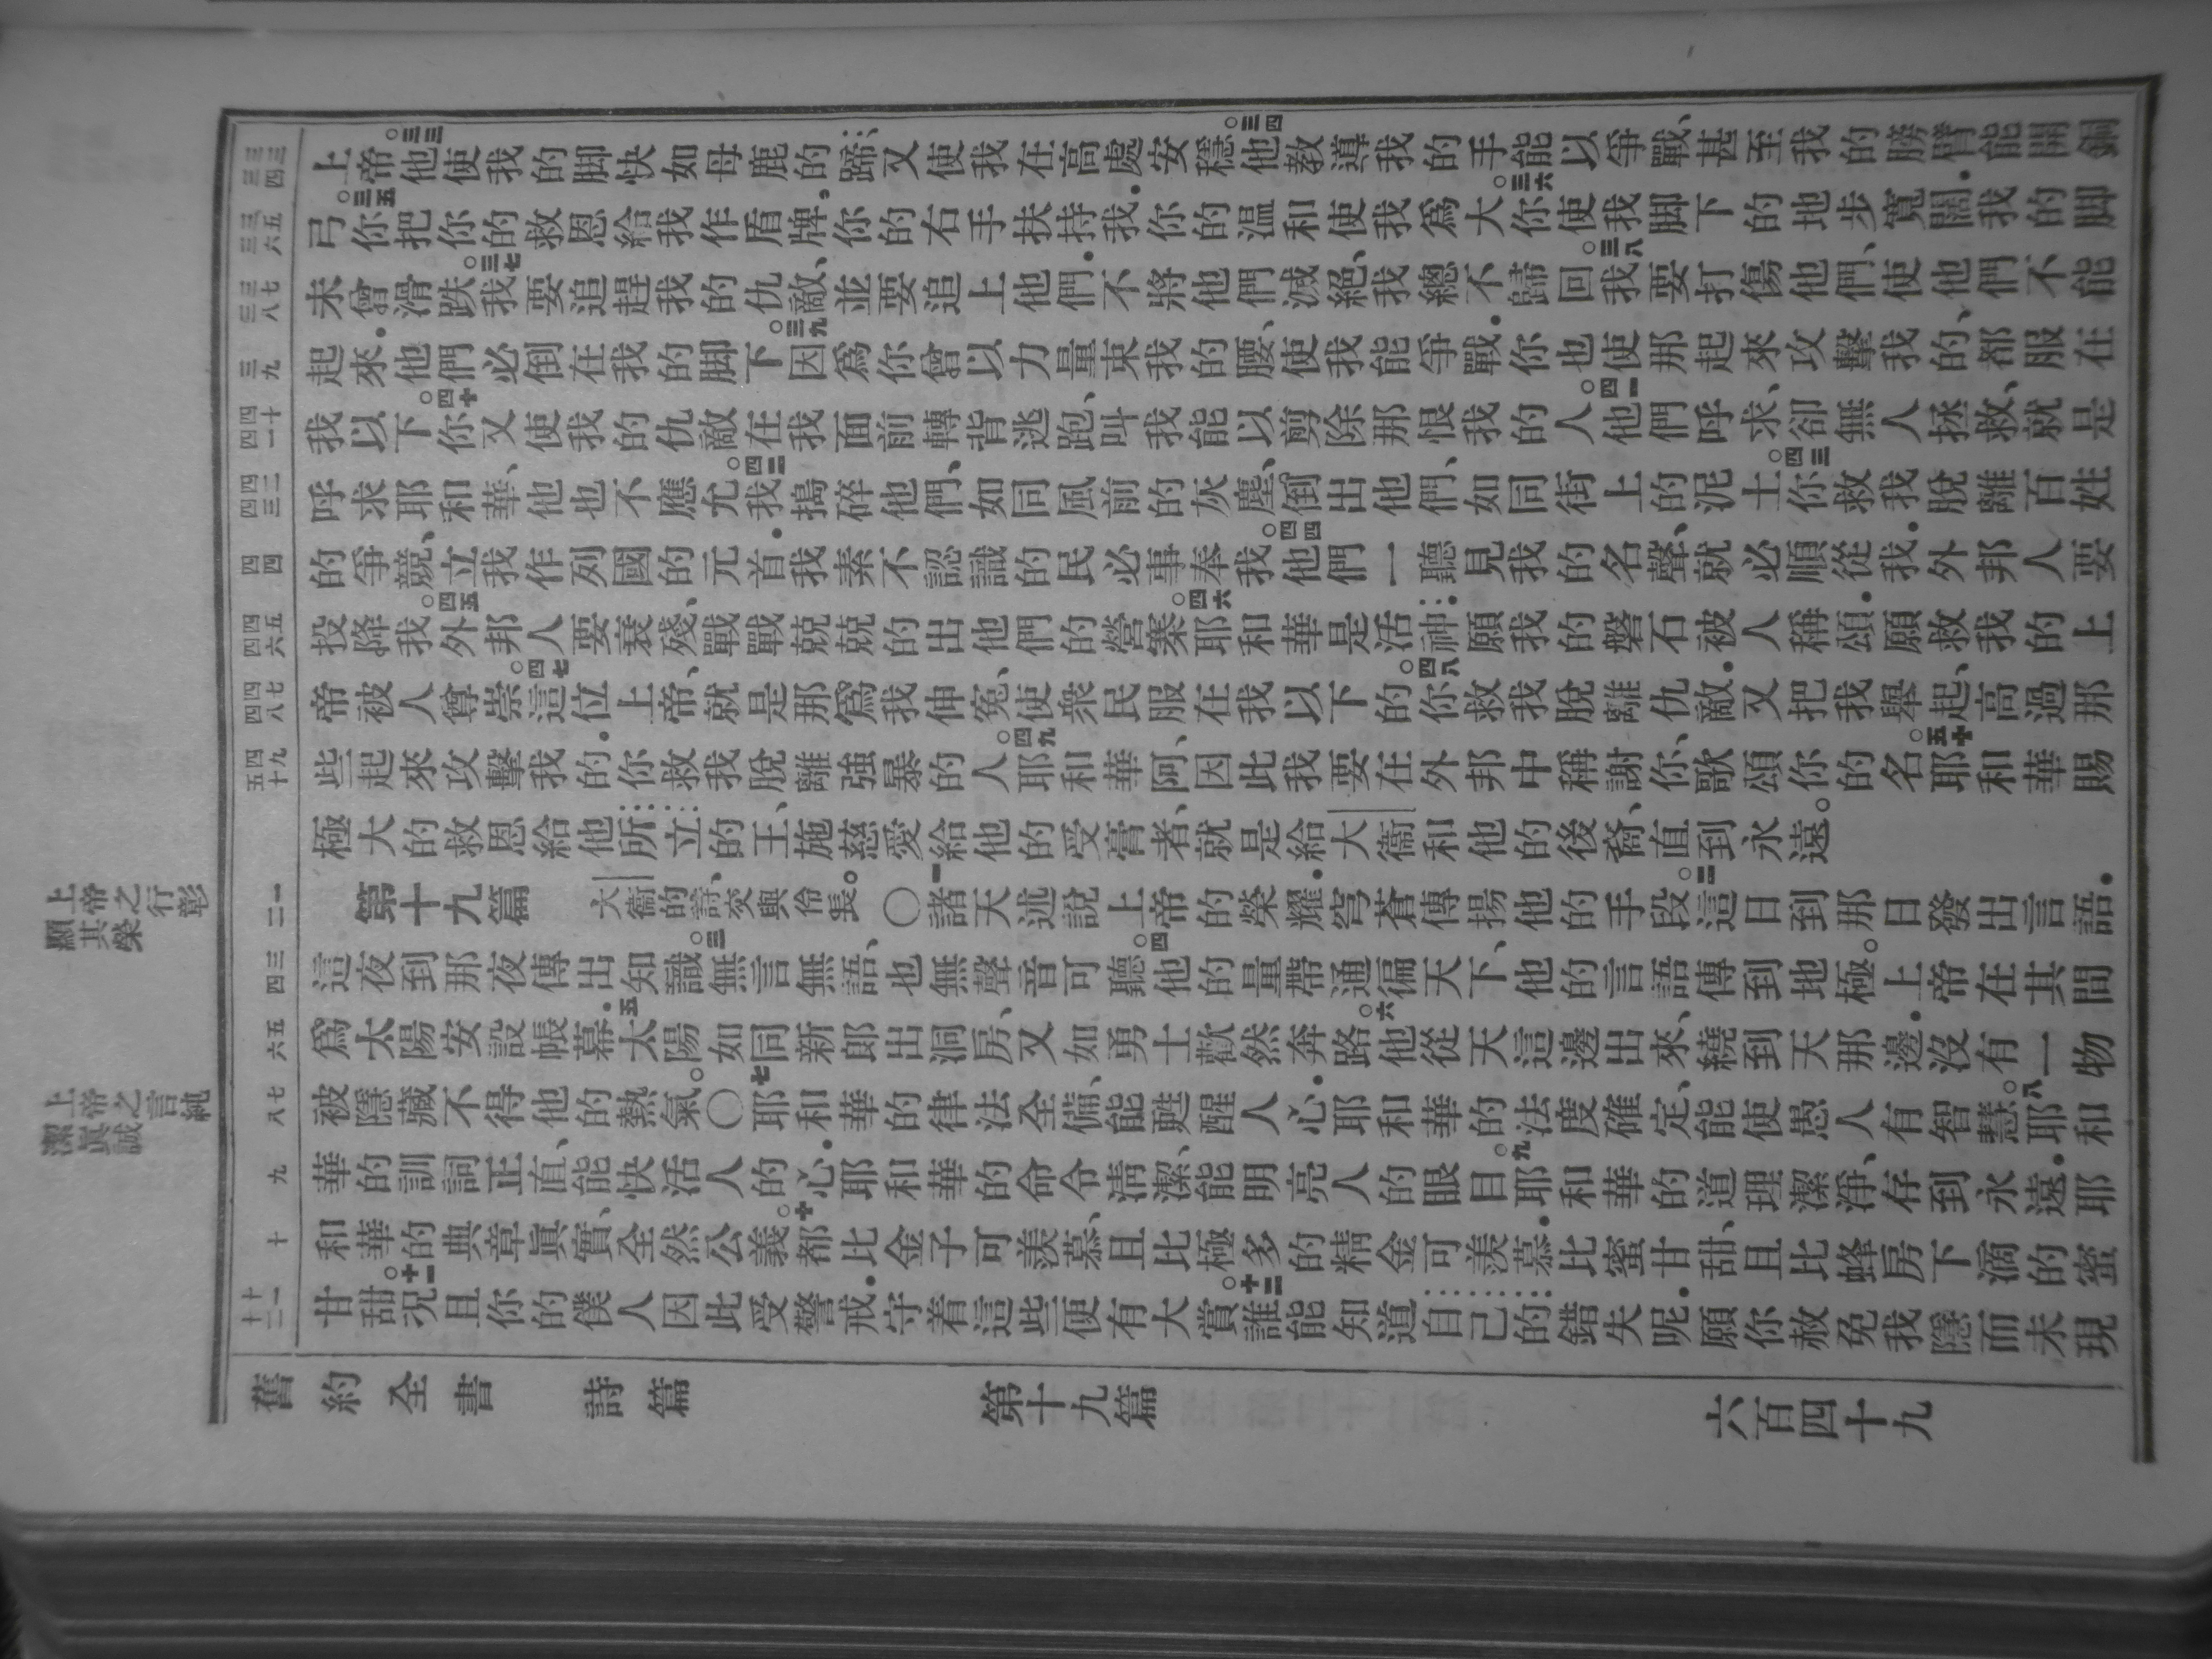 上帝之行彰
顯其榮
上帝之言純
潔眞誠
三三
三四
三五
三六
三七
三八
三九
四十
四一
四二
四三
四四
四五
四六
四七
四八
四九
五十
一
二
三
四
五
六
七
八
九
十
十一
十二
上帝。三三他使我的脚快如母鹿的蹄、又使我在高處安穩。三四他教導我的手能以爭戰、甚至我的膀臂能開銅
弓。三五你把你的救恩給我作盾牌、你的右手扶持我．你的溫和使我爲大。三六你使我脚下的地步寬闊．我的脚
未曾滑跌。三七我要追趕我的仇敵、並要追上他們．不將他們滅絕、我總不歸回。三八我要打傷他們、使他們不能
起來．他們必倒在我的脚下。三九因爲你曾以力量束我的腰、使我能爭戰．你也使那起來攻擊我的、都服在
我以下。四十你又使我的仇敵在我面前轉背逃跑、叫我能以剪除那恨我的人。四一他們呼求、卻無人拯救、就是
呼求耶和華、他也不應允。四二我搗碎他們、如同風前的灰塵、倒出他們、如同街上的泥土。四三你救我脫離百姓
的爭競、立我作列國的元首．我素不認識的民必事奉我。四四他們一聽見我的名聲、就必順從我．外邦人要
投降我。四五外邦人要衰殘、戰戰兢兢的出他們的營寨。四六耶和華是活神．願我的磐石被人稱頌．願救我的上
帝被人尊崇。四七這位上帝、就是那爲我伸冤、使衆民服在我以下的。四八你救我脫離仇敵．又把我舉起、高過那
些起來攻擊我的．你救我脫離強暴的人。四九耶和華阿、因此我要在外邦中稱謝你、歌頌你的名。五十耶和華賜
極大的救恩給他所立的王、施慈愛給他的受膏者、就是給大衞和他的後裔、直到永遠。
第十九篇 大衞的詩、交與伶長。 〇一諸天述說上帝的榮耀．穹蒼傳揚他的手段。二這日到那日發出言語．
這夜到那夜傳出知識。三無言無語、也無聲音可聽。四他的量帶通徧天下、他的言語傳到地極。上帝在其間
爲太陽安設帳幕．五太陽如同新郎出洞房、又如勇士歡然奔路。六他從天這邊出來、繞到天那邊．沒有一物
被隱藏不得他的熱氣。〇七耶和華的律法全備、能甦醒人心．耶和華的法度確定、能使愚人有智慧。八耶和
華的訓詞正直、能快活人的心．耶和華的命令清潔、能明亮人的眼目。九耶和華的道理潔淨、存到永遠．耶
和華的典章眞實、全然公義。十都比金子可羨慕、且比極多的精金可羨慕．比蜜甘甜、且比蜂房下滴的蜜
甘甜。十一況且你的僕人因此受警戒．守着這些便有大賞。十二誰能知道自己的錯失呢．願你赦免我隱而未現
舊約全書 詩篇 第十九篇 六百四十九